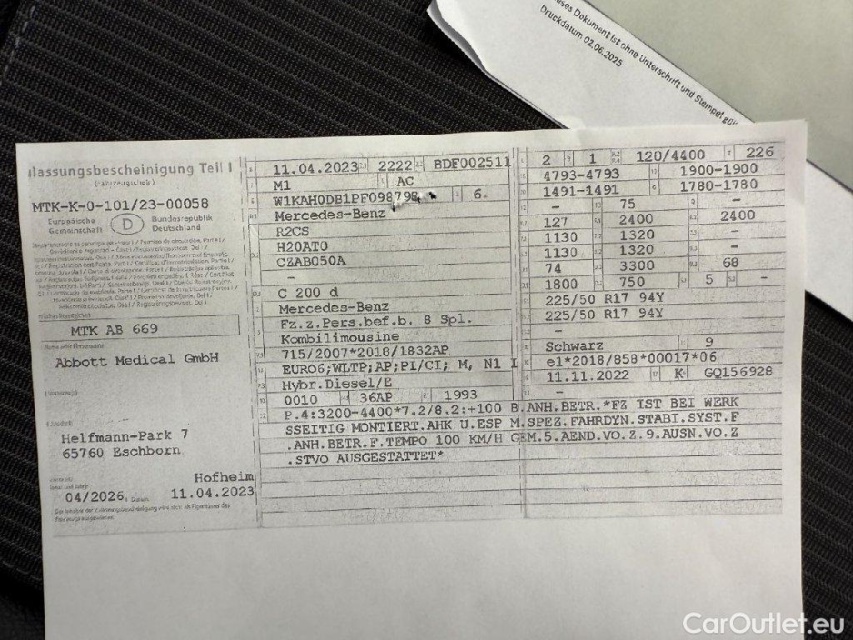 Dokument ist ohne Unterschrift und Stempel
Druckdatum 02.06.2025
lassungsbescheinigung Teil I
(Fahrzeugschein)
MTK-K-0-101/23-00058
Europäische Gemeinschaft
D
Bundesrepublik Deutschland
MTK AB 669
Abbott Medical GmbH
Helfmann-Park 7
65760 Eschborn
Hofheim
04/2026
11.04.2023
11.04.2023 2222 BDF002511
M1 AC
W1KAH0DB1PF098798 6.
Mercedes-Benz
R2CS
H20AT0
CZAB050A
–
C 200 d
Mercedes-Benz
Fz.z.Pers.bef.b. 8 Spl.
Kombilimousine
715/2007*2018/1832AP
EURO6;WLTP;AP;PI/CI; M, N1 I
Hybr.Diesel/E
0010 36AP 1993
2 1 120/4400 226
4793-4793 1900-1900
1491-1491 1780-1780
– 75 –
127 2400 2400
1130 1320 –
1130 1320 –
74 3300 68
1800 750 5 –
225/50 R17 94Y
225/50 R17 94Y
–
Schwarz 9
e1*2018/858*00017*06
11.11.2022 K GQ156928
–
P.4:3200-4400*7.2/8.2:+100 B.ANH.BETR.*FZ IST BEI WERK
SSEITIG MONTIERT.AHK U.ESP M.SPEZ.FAHRDYN.STABI.SYST.F
.ANH.BETR.F.TEMPO 100 KM/H GEM.5.AEND.VO.Z.9.AUSN.VO.Z
.STVO AUSGESTATTET*
CarOutlet.eu